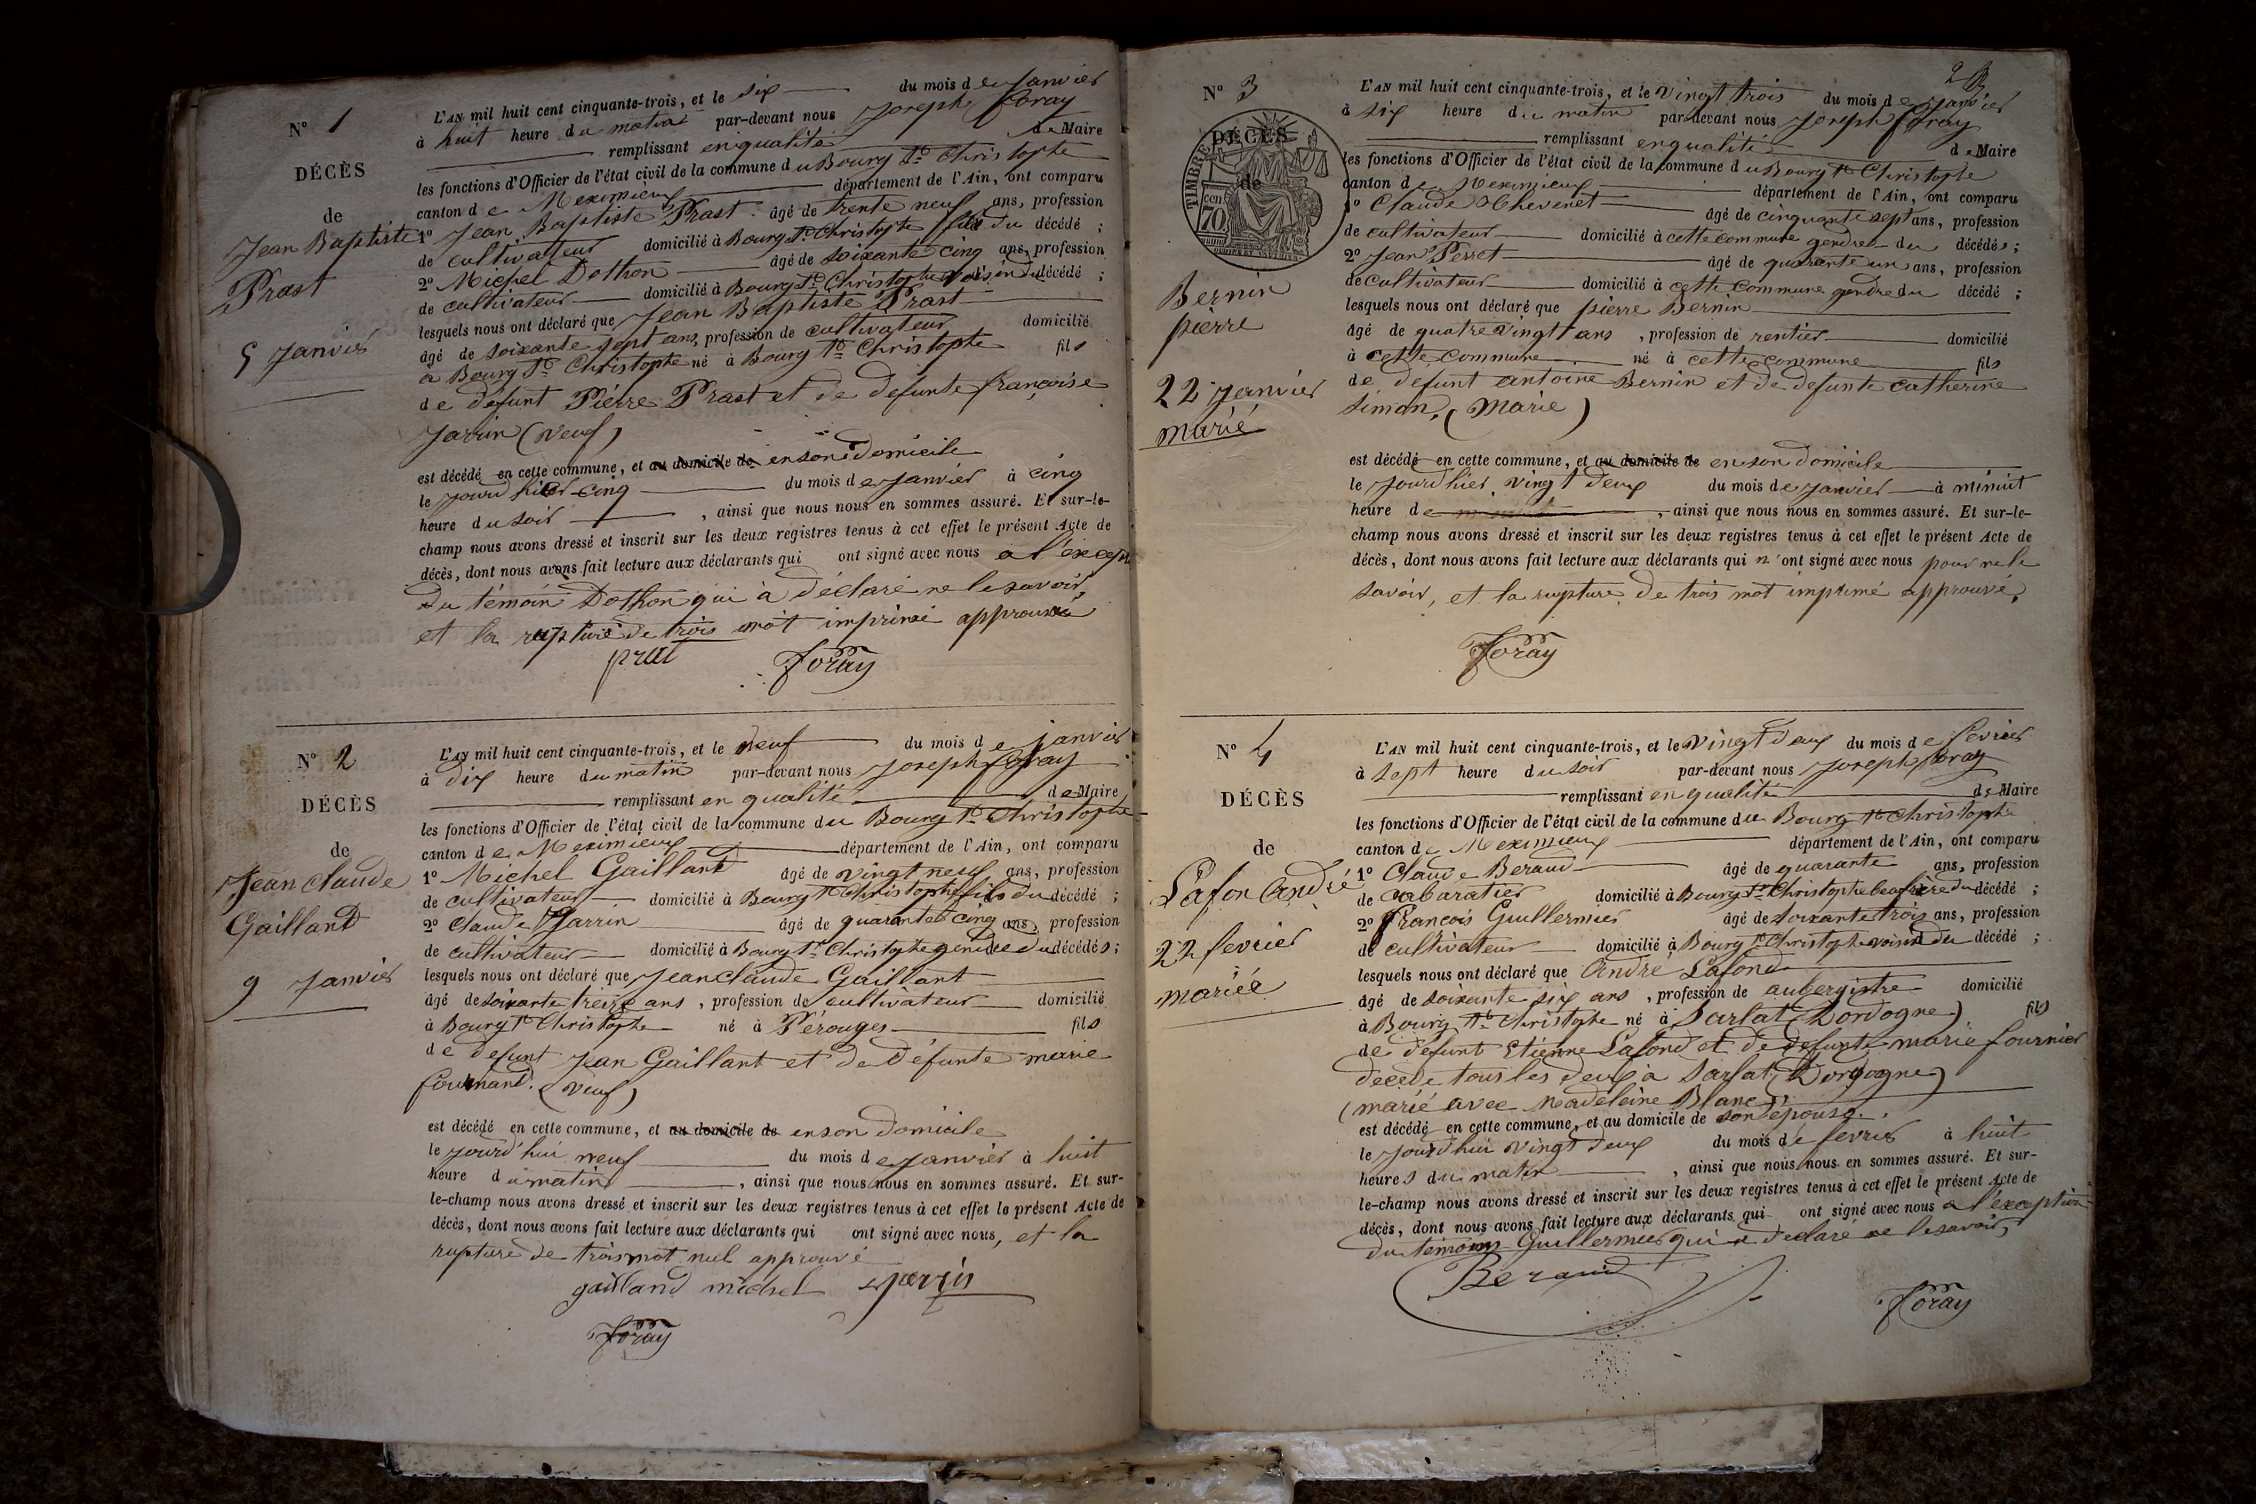 N° 1
DÉCÈS
de
Jean Baptiste
Prast
5 Janvier
L'AN mil huit cent cinquante-trois, et le six du mois de Janvier
à huit heure du matin par-devant nous Joseph Foray
remplissant en qualité de Maire
les fonctions d'Officier de l'état civil de la commune du Bourg St Christophe
canton de Meximieux département de l'Ain, ont comparu
1° Jean Baptiste Prast âgé de trente neuf ans, profession
de cultivateur domicilié à Bourg St Christophe fils du décédé ;
2° Michel Dothon âgé de soixante cinq ans, profession
de cultivateur domicilié à Bourg St Christophe voisin du décédé ;
lesquels nous ont déclaré que Jean Baptiste Prast
âgé de soixante sept ans, profession de cultivateur domicilié
à Bourg St Christophe né à Bourg St Christophe fils
de défunt Pierre Prast et de défunte françoise
Jarrin (veuf)
est décédé en cette commune, et au domicile de en son domicile
le jourd'hier cinq du mois de Janvier à cinq
heure du soir , ainsi que nous nous en sommes assuré. Et sur-le-
champ nous avons dressé et inscrit sur les deux registres tenus à cet effet le présent Acte de
décès, dont nous avons fait lecture aux déclarants qui ont signé avec nous a l'except
du témoin Dothon qui à déclaré ne le savoir
et la rupture de trois mot imprimé approuvé
prat Foray
N° 2
DÉCÈS
de
Jean Claude
Gaillant
9 Janvier
L'AN mil huit cent cinquante-trois, et le neuf du mois de janvier
à dix heure du matin par-devant nous Joseph Foray
remplissant en qualité de Maire
les fonctions d'Officier de l'état civil de la commune du Bourg St Christophe
canton de Meximieux département de l'Ain, ont comparu
1° Michel Gaillant âgé de vingt neuf ans, profession
de cultivateur domicilié à Bourg St Christophe fils du décédé ;
2° Claude Jarrin âgé de quarante cinq ans, profession
de cultivateur domicilié à Bourg St Christophe gendre du décédés ;
lesquels nous ont déclaré que Jean Claude Gaillant
âgé de soixante treize ans , profession de cultivateur domicilié
à Bourg St Christophe né à Pérouges fils
de défunt Jean Gaillant et de défunte marie
(veuf)
est décédé en cette commune, et au domicile de en son domicile
le jourd'hui neuf du mois de Janvier à huit
heure du matin , ainsi que nous nous en sommes assuré. Et sur-
le-champ nous avons dressé et inscrit sur les deux registres tenus à cet effet le présent Acte de
décès, dont nous avons fait lecture aux déclarants qui ont signé avec nous, et la
rupture de trois mot nul approuvé
gailland michel Jarrin
Foray
2
N° 3
DÉCÈS
de
TIMBRE
70
Bernin
pierre
22 Janvier
marié
L'AN mil huit cent cinquante-trois, et le vingt trois du mois de Janvier
à six heure du matin par-devant nous Joseph Foray
remplissant en qualité de Maire
les fonctions d'Officier de l'état civil de la commune du Bourg St Christophe
canton de Meximieux département de l'Ain, ont comparu
1° Claude Thevenet âgé de cinquante sept ans, profession
de cultivateur domicilié à cette commune gendre du décédés ;
2° Jean Perret âgé de quarante un ans, profession
de cultivateur domicilié à cette commune gendre du décédé ;
lesquels nous ont déclaré que pierre Bernin
âgé de quatre vingt ans , profession de rentier domicilié
à cette commune né à cette commune fils
de défunt antoine Bernin et de defunte catherine
simon. (Marié)
est décédé en cette commune, et au domicile de en son domicile
le jourd'hier vingt deux du mois de janvier à minuit
heure de , ainsi que nous nous en sommes assuré. Et sur-le-
champ nous avons dressé et inscrit sur les deux registres tenus à cet effet le présent Acte de
décès, dont nous avons fait lecture aux déclarants qui n'ont signé avec nous pour ne le
savoir, et la rupture de trois mot imprimé approuvé.
Foray
N° 4
DÉCÈS
de
Lafon André
22 fevrier
mariéé
L'AN mil huit cent cinquante-trois, et le vingt deux du mois de fevrier
à sept heure du soir par-devant nous Joseph Foray
remplissant en qualité de Maire
les fonctions d'Officier de l'état civil de la commune du Bourg St Christophe
canton de Meximieux département de l'Ain, ont comparu
1° Claude Beraud âgé de quarante ans, profession
de cabaratier domicilié à Bourg St Christophe beaufrère du décédé ;
2° François Guillermier âgé de soixante trois ans, profession
de cultivateur domicilié à Bourg St Christophe voisin du décédé ;
lesquels nous ont déclaré que André Lafond
âgé de soixante six ans , profession de aubergistre domicilié
à Bourg St Christophe né à Sarlat (Dordogne) fils
de défunt Etienne Lafond et de defunte marie fournier
décédé tous les deux à Sarlat (Dordogne)
(marié avec Madeleine Blanc)
est décédé en cette commune, et au domicile de son épouse.
le jourd'hui vingt deux du mois de fevrier à huit
heures du matin , ainsi que nous nous en sommes assuré. Et sur-
le-champ nous avons dressé et inscrit sur les deux registres tenus à cet effet le présent Acte de
décès, dont nous avons fait lecture aux déclarants qui ont signé avec nous a l'exception
du témoins Guillermier qui a declaré ne le savoir,
Beraud
Foray